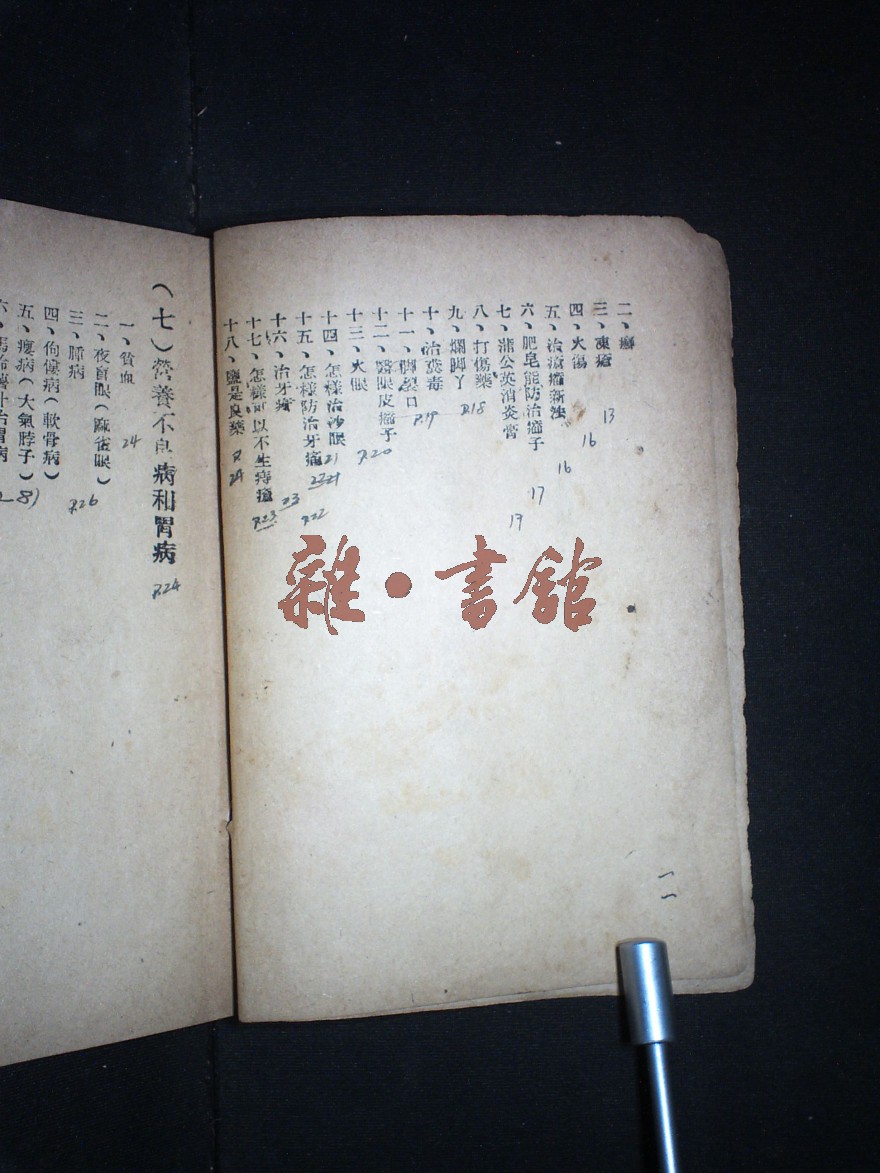 二、癬
三、凍瘡 13
四、火傷 16
五、治瘡癤新法 16
六、肥皂能防治癤子 17
七、蒲公英消炎膏 17
八、打傷藥
九、爛脚丫 P.18
十、治粪毒
十一、脚裂口 P.19
十二、醫眼皮癤子
十三、火眼 P.20
十四、怎樣治沙眼 21
十五、怎樣防治牙痛 P.22
十六、治牙疼 23
十七、怎樣可以不生痔瘡 P.23
十八、鹽是良藥 P. 24
雜·書館
一一
(七)營養不良病和胃病 P.24
一、貧血 24
二、夜盲眼(麻雀眼)
三、腫病 P.26
四、佝僂病(軟骨病)
五、瘿病(大氣脖子)